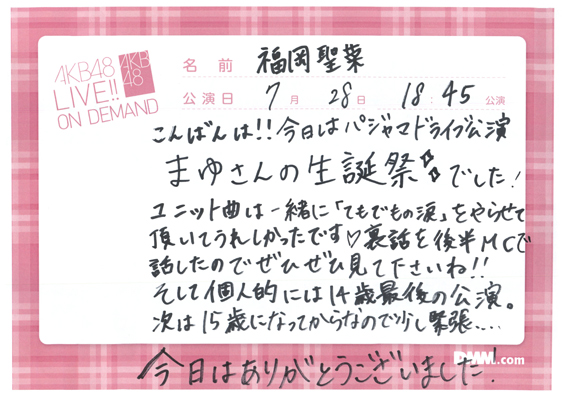 AKB48
LIVE!!
ON DEMAND
AKB
48
名前 福岡聖菜
公演日 7月28日 18:45公演
こんばんは!!今日はパジャマドライブ公演
まゆさんの生誕祭でした!
ユニット曲は一緒に「てもでもの涙」をやらせて
頂いてうれしかったです♡裏話を後半MCで
話したのでぜひぜひ見て下さいね!!
そして個人的には14歳最後の公演。
次は15歳になってからなので少し緊張....
今日はありがとうございました!
DMM.com